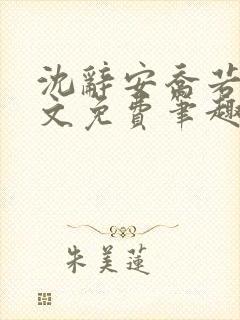 沈辞安乔若
文免费笔趣
朱美莲